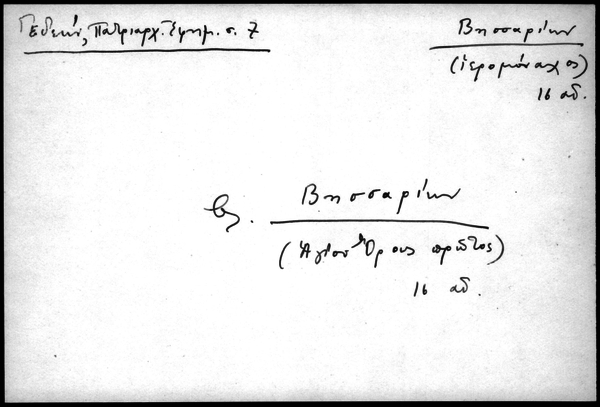 Γεδεών, Πατριαρχ. Ἐφημ. σ. 7
Βησσαρίων
(ἱερομόναχος)
16 αἰ.
βλ. Βησσαρίων
(Ἁγίου Ὄρους πρῶτος)
16 αἰ.